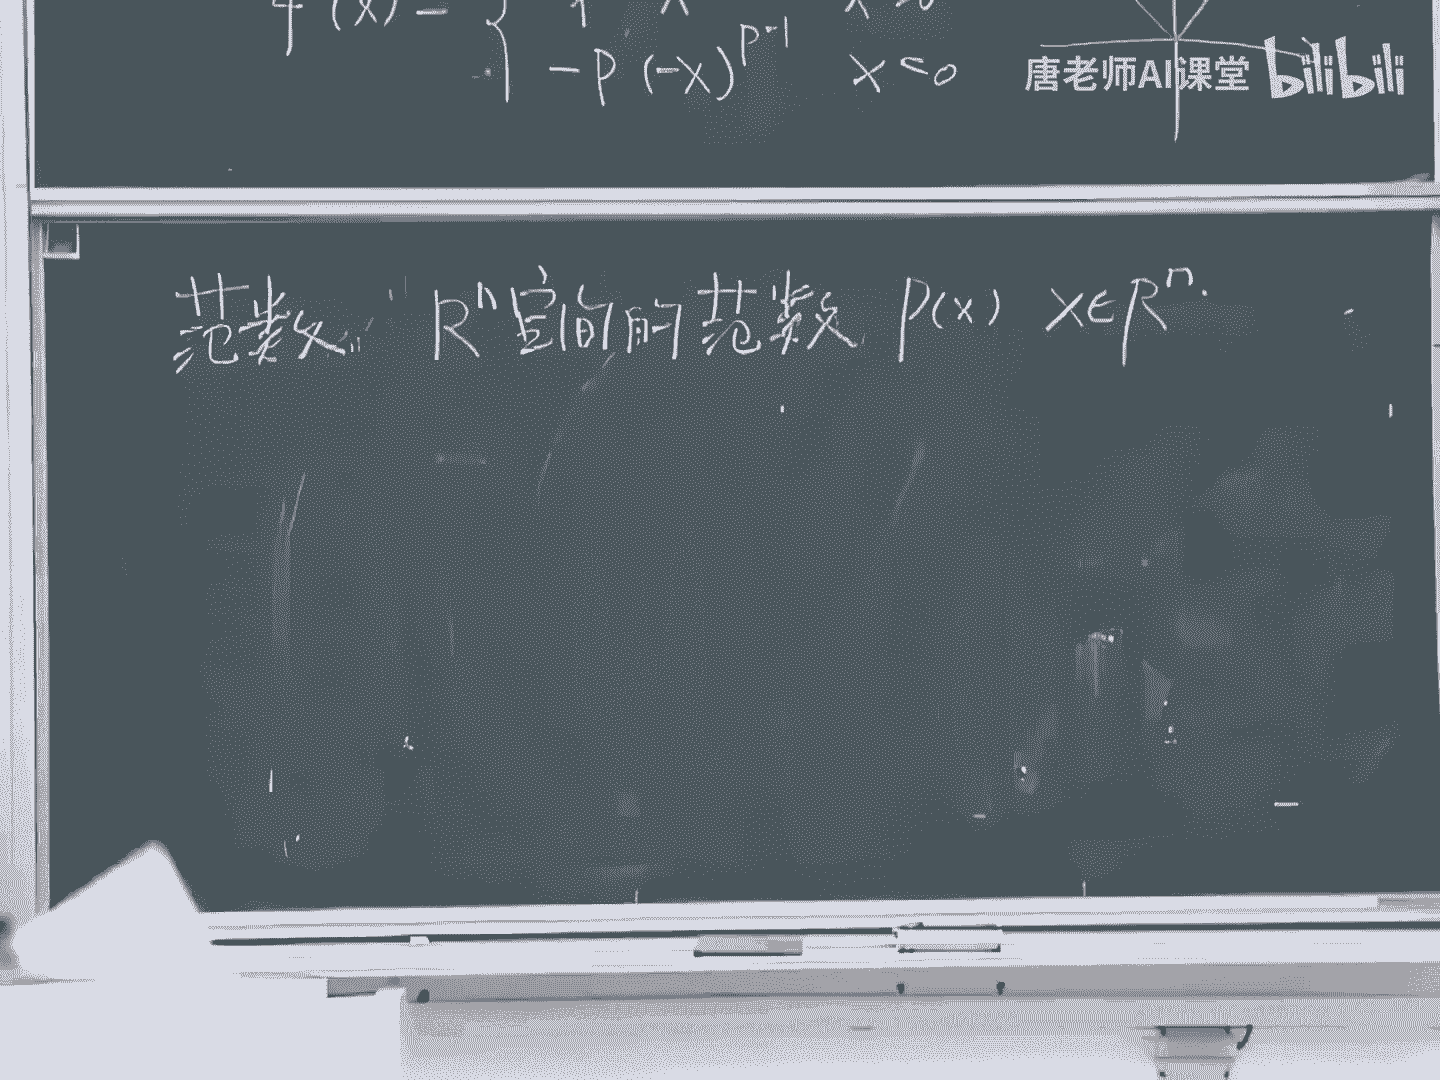 -P(-x)^{P-1} x<0
唐老师AI课堂 bilibili
范数: R^n空间的范数 P(x) x∈R^n.